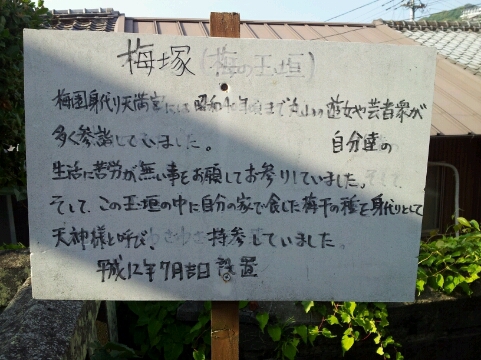 梅塚(梅の玉垣)
梅園身代り天満宮には昭和40年頃まで丸山の遊女や芸者衆が
多く参詣していました。 自分達の
生活に苦労が無い事をお願してお参りしていました。
そして、この玉垣の中に自分の家で食した梅干の種を身代りとして
天神様と呼び、 持参していました。
平成12年7月吉日 設置